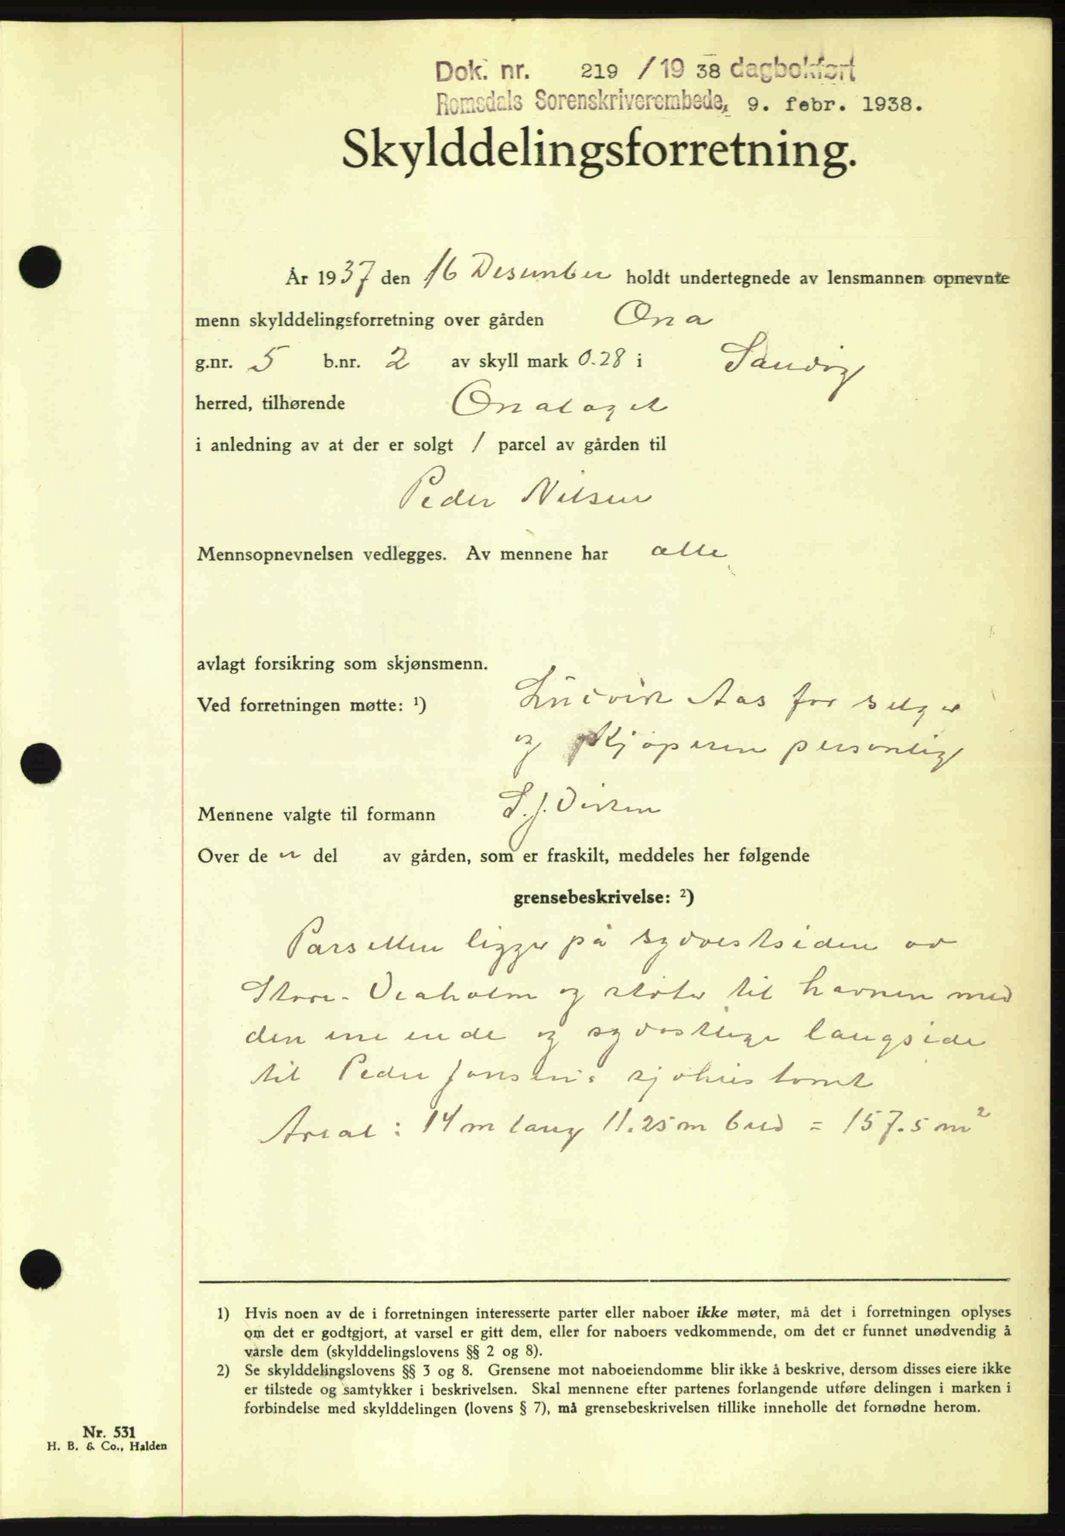 Dok. nr. 219 /19 38 dagbokført
Romsdals Sorenskriverembede, 9. febr. 1938.
Skylddelingsforretning.
År 1937 den 16 Desember holdt undertegnede av lensmannen opnevnte
menn skylddelingsforretning over gården Ona
g.nr. 5 b.nr. 2 av skyll mark 0.28 i Sandøy
herred, tilhørende Onalaget
i anledning av at der er solgt 1 parcel av gården til
Peder Nilsen
Mennsopnevnelsen vedlegges. Av mennene har alle
avlagt forsikring som skjønsmenn.
Ved forretningen møtte: ¹) Ludvik Aas for selger
og Kjøperen personlig
Mennene valgte til formann
Over de n del av gården, som er fraskilt, meddeles her følgende
grensebeskrivelse: ²)
Parsellen ligger på sydvestsiden av
Store- og støter til havnen med
den ene ende og sydvestlige langside
til Peder Jensens sjøhustomt
Areal: 14 m lang 11.25 m bred = 157.5 m²
1) Hvis noen av de i forretningen interesserte parter eller naboer ikke møter, må det i forretningen oplyses
om det er godtgjort, at varsel er gitt dem, eller for naboers vedkommende, om det er funnet unødvendig å
varsle dem (skylddelingslovens §§ 2 og 8).
2) Se skylddelingslovens §§ 3 og 8. Grensene mot naboeiendomme blir ikke å beskrive, dersom disses eiere ikke
er tilstede og samtykker i beskrivelsen. Skal mennene efter partenes forlangende utføre delingen i marken i
forbindelse med skylddelingen (lovens § 7), må grensebeskrivelsen tillike inneholle det fornødne herom.
Nr. 531
H. B. & Co., Halden